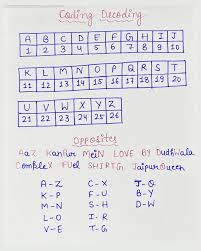 Coding Decoding
A B C D E F G H I J
1 2 3 4 5 6 7 8 9 10
K L M N O P Q R S T
11 12 13 14 15 16 17 18 19 20
U V W X Y Z
21 22 23 24 25 26
OPPOSITES
AaZ KanPur MeiN LOVE BY DudHWala
CompleX FUel SHIRTG JaipurQueen
A - Z C - X J - Q
K - P F - U B - Y
M - N S - H D - W
L - O I - R
V - E T - G